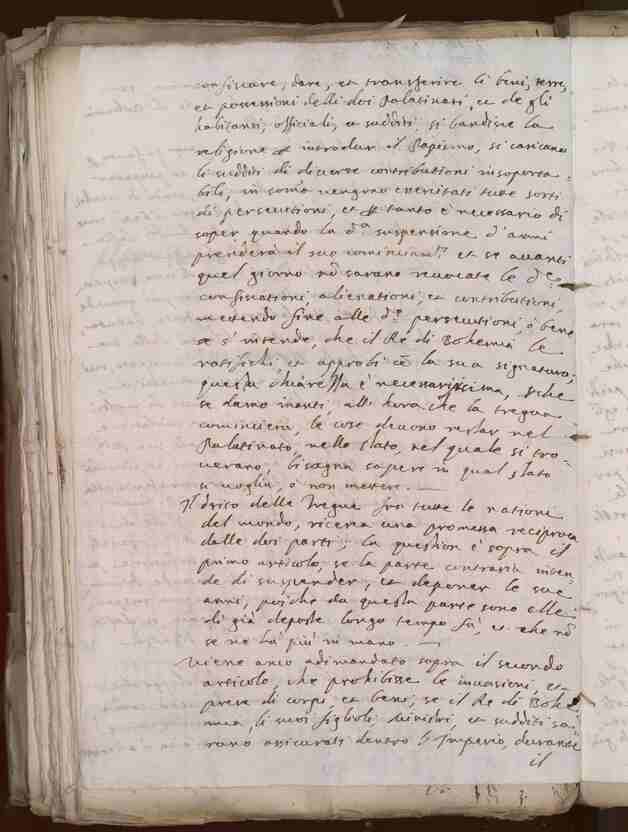 confiscare, dare, et transferire li beni, terre,
et possessioni delli doi Palatinati, et de gli
habitanti, officiali, et sudditi, si bandisce la
religione et introdur il Papismo, si caricano
li sudditi di diverse contributioni insoporta-
bili, in som̃a vengono exercitati tute sorti
di persecutioni, et tanto è necessario di
saper quando la d.ª suspensione d'armi
prenderà il suo comincium.to et se avanti
quel giorno nõ sarano revocate le d.e
confiscationi, alienationi, et contributioni,
metendo fine alle d.e persecutioni, ò bene
se s'intende, che il Rè di Bohemia le
ratifichi, et approbi cõ la sua signatura,
questa chiarezza è necessarissima, che
se damo inanti, all' hora che la tregua
comincierà, le cose devono restar nel
Palatinato, nello stato, nel quale si tro-
verano, bisogna sapere in qual stato
si voglia, ò non metere.
Il drito delle Tregue fra tute le nationi
del mondo, ricerca una promessa reciproca
dalle doi parti; la question è sopra il
primo articolo, se la parte contraria inten-
de di suspender, et deponer le sue
armi, poiche da questa parte sono elle
di già deposte longo tempo fà, et che nõ
se ne hà più in mano.
Viene anco adimandato sopra il secondo
articolo, che prohibisse le invasioni, et
prese di corpi, et beni, se il Rè di Bohe-
mia, li suoi figlioli, Ministri, et sudditi sa-
rano assicurati dentro l'Imperio, durante
il